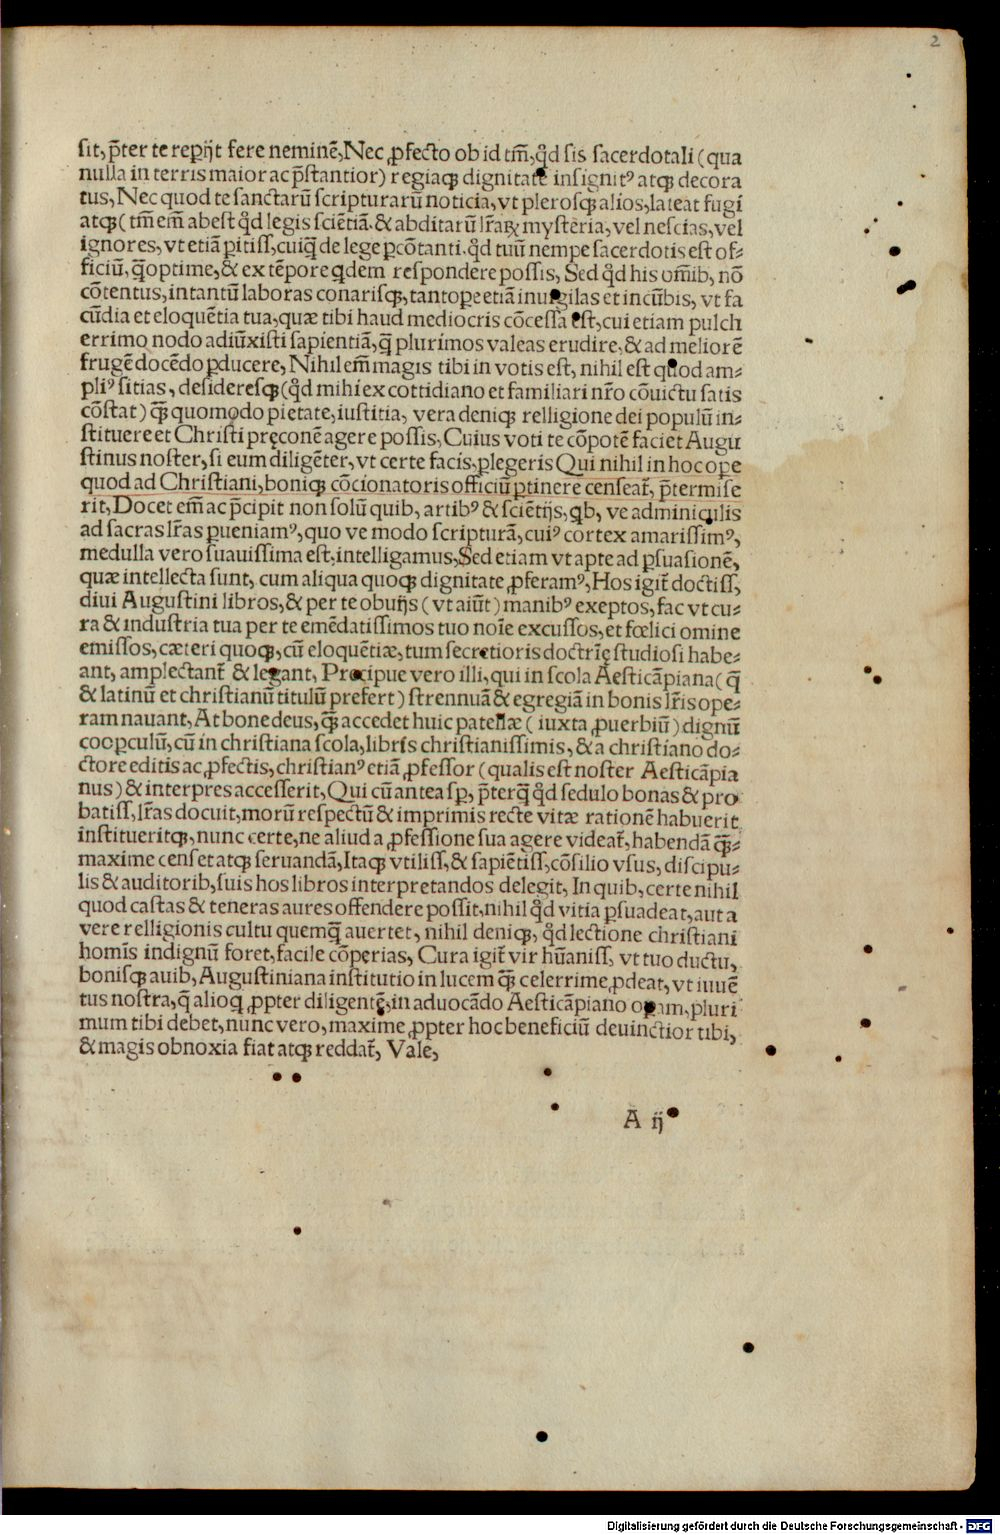 2
sit, p̄ter te reperijt fere neminē, Nec ꝓfecto ob id tm̄, qđ sis sacerdotali (qua
nulla in terris maior ac p̄stantior) regiaqꝫ dignitate insignitꝰ atqꝫ decora
tus, Nec quod te sanctarū scripturarū noticia, vt plerosqꝫ alios, lateat fugi
atqꝫ (tm̄ em̄ abest qđ legis sciētiā & abditarū lr̄aꝝ mysteria, vel nescias, vel
ignores, vt etiā ꝑitiss, cuiq̄ de lege ꝑcōtanti, qđ tuū nempe sacerdotis est of⸗
ficiū, q̄optime, & ex tēpore qdem respondere possis, Sed qđ his om̄ib, nō
cōtentus, in tantū laboras conarisqꝫ, tantoꝑe etiā inuigilas et incūbis, vt fa
cūdia et eloquētia tua, quæ tibi haud mediocris cōcessa est, cui etiam pulch
errimo nodo adiūxisti sapientiā, q̄ plurimos valeas erudire, & ad meliorē
frugē docēdo ꝑducere, Nihil em̄ magis tibi in votis est, nihil est quod am⸗
pliꝰ sitias, desideresqꝫ (qđ mihi ex cottidiano et familiari nr̄o cōuictu satis
cōstat) qꝫ̄ quomodo pietate, iustitia, vera deniqꝫ relligione dei populū in⸗
stituere et Christi pręconē agere possis, Cuius voti te cōpotē faciet Augu
stinus noster, si eum diligēter, vt certe facis, ꝑlegeris Qui nihil in hoc oꝑe
quod ad Christiani, boniqꝫ cōcionatoris officiū ꝑtinere censeat̄, p̄termise
rit, Docet em̄ ac p̄cipit non solū quib, artibꝰ & sciētijs, qb, ve adminiculis
ad sacras lr̄as ꝑueniamꝰ, quo ve modo scripturā, cuiꝰ cortex amarissimꝰ,
medulla vero suauissima est, intelligamus, Sed etiam vt apte ad ꝑsuasionē,
quæ intellecta sunt, cum aliqua quoqꝫ dignitate ꝓferamꝰ, Hos igit̄ doctiss,
diui Augustini libros, & per te obuijs (vt aiūt) manibꝰ exeptos, fac vt cu⸗
ra & industria tua per te emēdatissimos tuo noīe excussos, et fœlici omine
emissos, cæteri quoqꝫ, cū eloquētiæ, tum secretioris doctrīę studiosi habe⸗
ant, amplectant̄ & legant, Præcipue vero illi, qui in scola Aesticāpiana (q̄
& latinū et christianū titulū prefert) strennuā & egregiā in bonis lr̄is ope⸗
ram nauant, At bone deus, qꝫ̄ accedet huic patellæ (iuxta ꝓuerbiū) dignū
cooꝑculū, cū in christiana scola, libris christianissimis, & a christiano do⸗
ctore editis ac ꝓfectis, christianꝰ etiā ꝓfessor (qualis est noster Aesticāpia
nus) & interpres accesserit, Qui cū antea sꝑ, p̄terq̄ qđ sedulo bonas & pro
batiss, lr̄as docuit, morū respectū & imprimis recte vitæ rationē habuerit
instituueritqꝫ, nunc certe, ne aliud a ꝓfessione sua agere videat̄, habendā qꝫ̄⸗
maxime censet atqꝫ seruandā, Itaqꝫ vtiliss, & sapiētiss, cōsilio vsus, discipu⸗
lis & auditorib, suis hos libros interpretandos delegit, In quib, certe nihil
quod castas & teneras aures offendere possit, nihil qđ vitia ꝑsuadeat, aut a
vere relligionis cultu quemq̄ auertet, nihil deniqꝫ, qđ lectione christiani
homīs indignū foret, facile cōꝑerias, Cura igit̄ vir hūaniss, vt tuo ductu,
bonisqꝫ auib, Augustiniana institutio in lucem qꝫ̄ celerrime, ꝓdeat, vt iuuē
tus nostra, q̄ alioq ꝓpter diligentē, in aduocādo Aesticāpiano oꝑam, pluri
mum tibi debet, nunc vero, maxime ꝓpter hoc beneficiū deuinctior tibi,
& magis obnoxia fiat atqꝫ reddat̄, Vale,
A ij
Digitalisierung gefördert durch die Deutsche Forschungsgemeinschaft - DFG